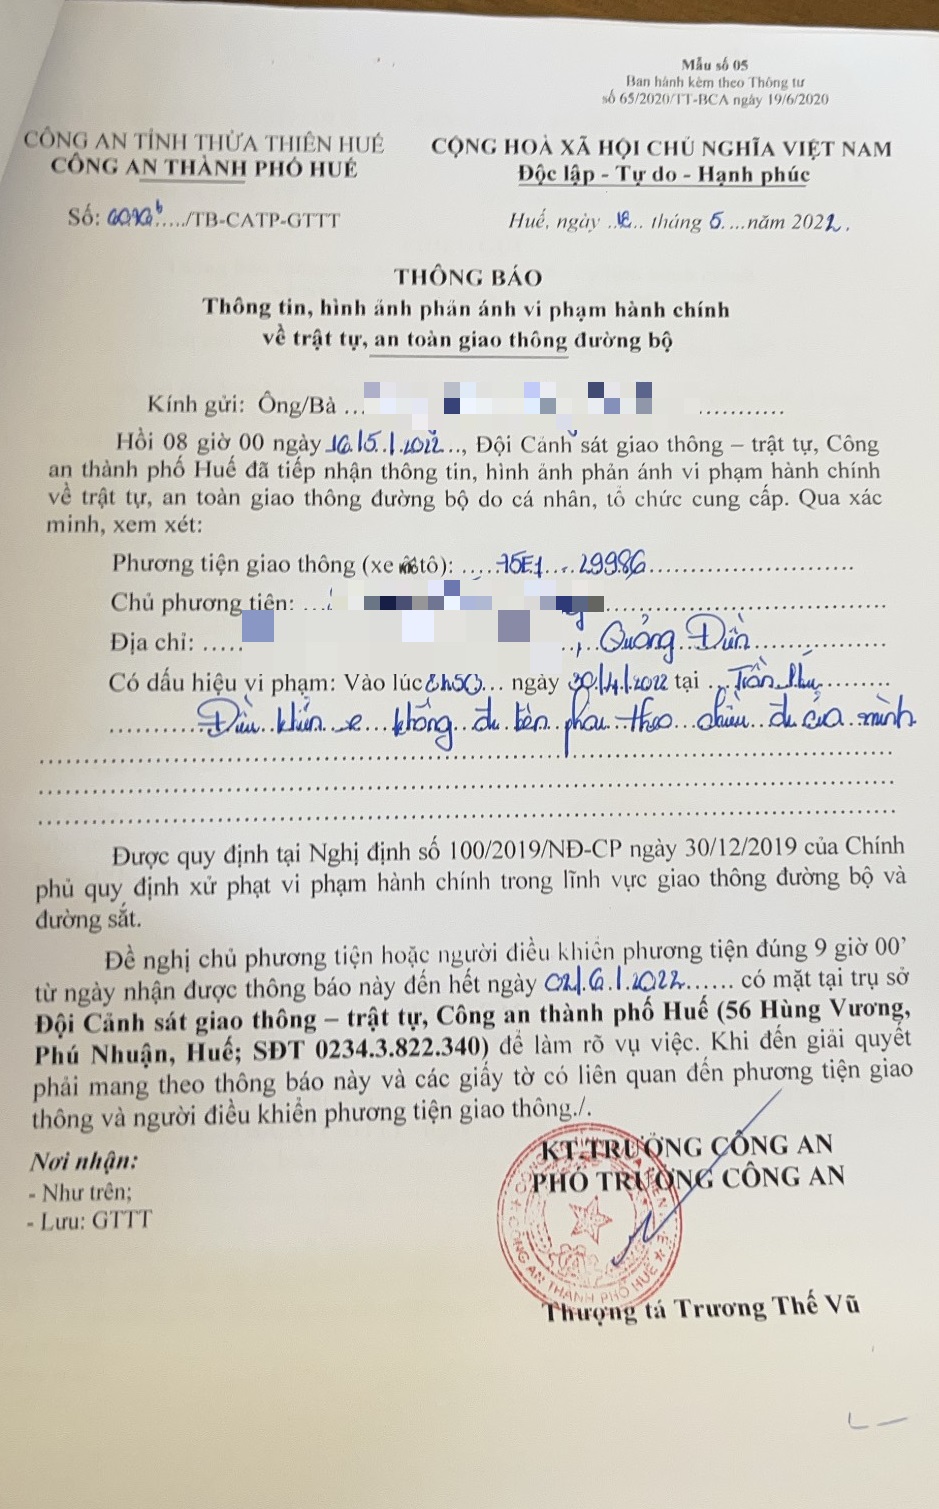 Mẫu số 05
Ban hành kèm theo Thông tư
số 65/2020/TT-BCA ngày 19/6/2020
CÔNG AN TỈNH THỪA THIÊN HUẾ
CÔNG AN THÀNH PHỐ HUẾ
CỘNG HOÀ XÃ HỘI CHỦ NGHĨA VIỆT NAM
Độc lập - Tự do - Hạnh phúc
Số: ...../TB-CATP-GTTT
Huế, ngày ..18.. tháng 5....năm 2022.
THÔNG BÁO
Thông tin, hình ảnh phản ánh vi phạm hành chính
về trật tự, an toàn giao thông đường bộ
Kính gửi: Ông/Bà ... ...........
Hồi 08 giờ 00 ngày 16/5/2022.., Đội Cảnh sát giao thông – trật tự, Công
an thành phố Huế đã tiếp nhận thông tin, hình ảnh phản ánh vi phạm hành chính
về trật tự, an toàn giao thông đường bộ do cá nhân, tổ chức cung cấp. Qua xác
minh, xem xét:
Phương tiện giao thông (xe môtô): .....75E1...-29986..........................
Chủ phương tiên: ... ...................................
Địa chỉ: ..... ..., Quảng Điền................
Có dấu hiệu vi phạm: Vào lúc 8h50... ngày 30/4/2022 tại ...Trần Phú..........
............Điều khiển xe không đi bên phải theo chiều đi của mình
Được quy định tại Nghị định số 100/2019/NĐ-CP ngày 30/12/2019 của Chính
phủ quy định xử phạt vi phạm hành chính trong lĩnh vực giao thông đường bộ và
đường sắt.
Đề nghị chủ phương tiện hoặc người điều khiển phương tiện đúng 9 giờ 00’
từ ngày nhận được thông báo này đến hết ngày 02/6/2022...... có mặt tại trụ sở
Đội Cảnh sát giao thông – trật tự, Công an thành phố Huế (56 Hùng Vương,
Phú Nhuận, Huế; SĐT 0234.3.822.340) để làm rõ vụ việc. Khi đến giải quyết
phải mang theo thông báo này và các giấy tờ có liên quan đến phương tiện giao
thông và người điều khiển phương tiện giao thông./.
Nơi nhận:
- Như trên;
- Lưu: GTTT
KT.TRƯỞNG CÔNG AN
PHÓ TRƯỞNG CÔNG AN
CÔNG AN THÀNH PHỐ HUẾ
Thượng tá Trương Thế Vũ